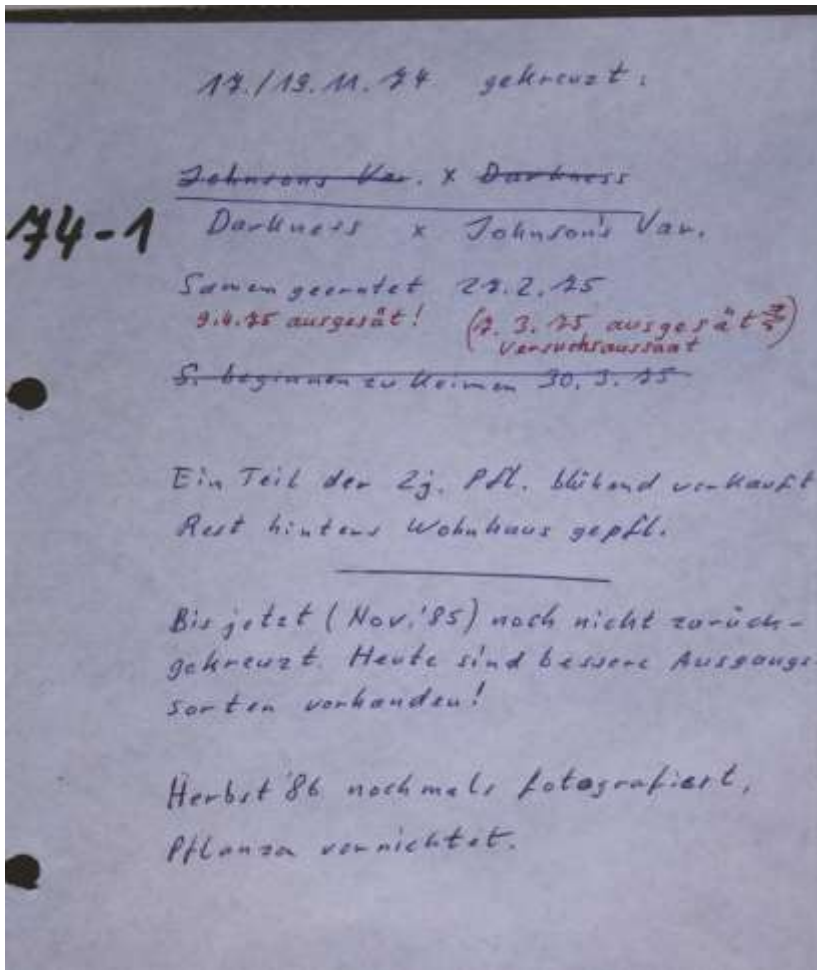 17./19.11.74 gekreuzt:
Johnsons Var. x Darkness
74-1 Darkness x Johnson's Var.
Samen geerntet 27.2.75
9.4.75 ausgesät! (7.3.75 ausgesät
Versuchsaussaat)
S. beginnen zu keimen 30.3.75
Ein Teil der 2j. Pfl. blühend verkauft
Rest hinters Wohnhaus gepfl.
Bis jetzt (Nov.'85) noch nicht zurück-
gekreuzt. Heute sind bessere Ausgangs-
sorten vorhanden!
Herbst '86 nochmals fotografiert,
Pflanze vernichtet.